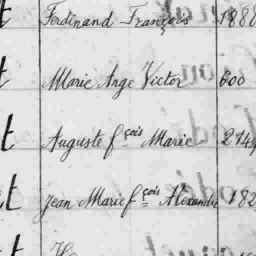 t Ferdinand François 188
t Marie Ange Victor 600
t Auguste fçois Marie 2149
t Jean Marie fçois Alexandre 182
t